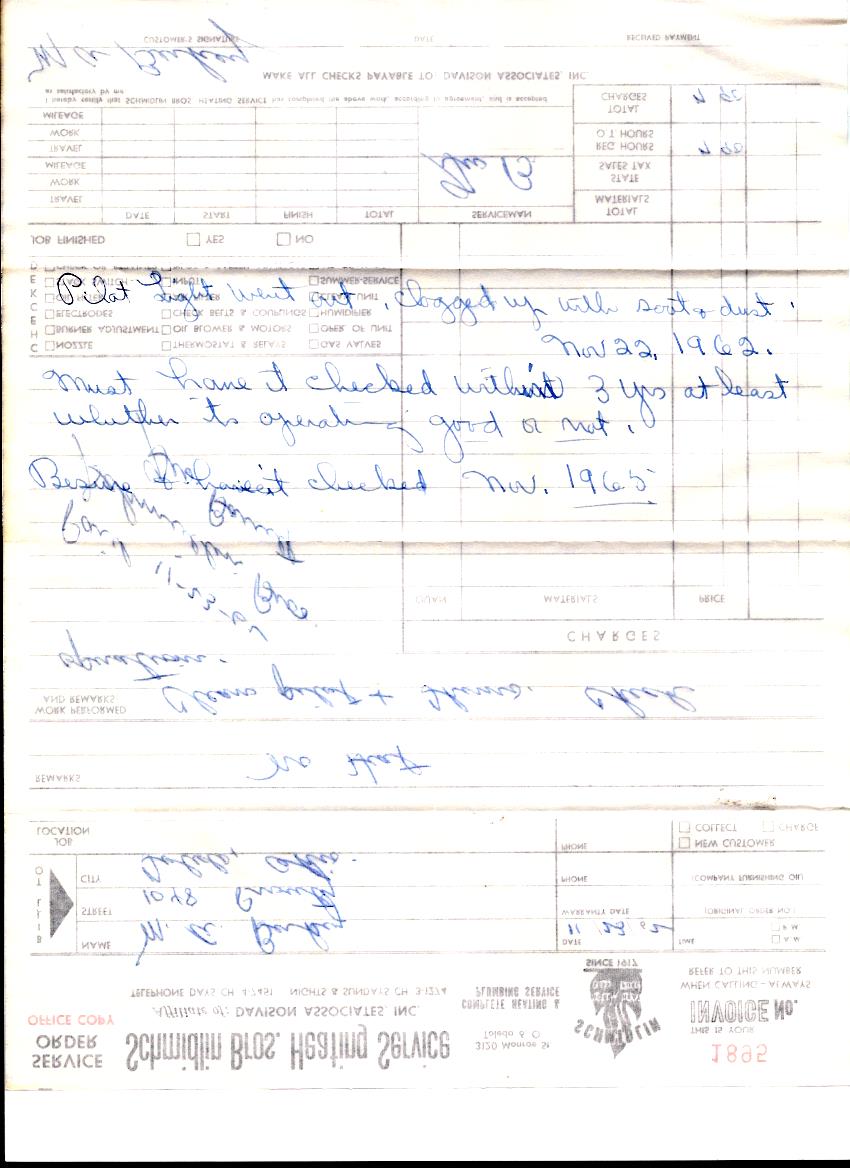 Pilot Light went out, clogged up with soot & dust.
Nov 22, 1962.
Must have it checked within 3 yrs at least
whether its operating good or not.
Besure & have it checked Nov. 1965
SERVICE ORDER
OFFICE COPY
Schmidlin Bros. Heating Service
Affiliate of: DAVISON ASSOCIATES, INC.
TELEPHONE DAYS CH 4-7451 NIGHTS & SUNDAYS CH 3-1274
3120 Monroe St
Toledo 6 O
COMPLETE HEATING &
PLUMBING SERVICE
SCHMIDLIN
SINCE 1917
1895
THIS IS YOUR
INVOICE No.
WHEN CALLING - ALWAYS
REFER TO THIS NUMBER
BILL TO
NAME
STREET 1048
CITY Toledo, Ohio.
JOB LOCATION
DATE 11/22/62
TIME
A.M.
P.M.
WARRANTY DATE
(ORIGINAL ORDER NO.)
PHONE
(COMPANY FURNISHING OIL)
PHONE
NEW CUSTOMER
COLLECT
CHARGE
REMARKS
No Heat
WORK PERFORMED
AND REMARKS
Clean pilot + thermo. Check
operation.
CHARGES
QUAN
MATERIALS
PRICE
CHECKED
NOZZLE
THERMOSTAT & RELAYS
GAS VALVES
BURNER ADJUSTMENT
OIL BLOWER & MOTORS
OPER. OF UNIT
ELECTRODES
CHECK BELTS & COUPLINGS
HUMIDIFIER
CLEAN UNIT
INPUT
SUMMER-SERVICE
JOB FINISHED
YES
NO
DATE
START
FINISH
TOTAL
SERVICEMAN
TRAVEL
WORK
MILEAGE
TRAVEL
WORK
MILEAGE
TOTAL MATERIALS
STATE SALES TAX
REG HOURS
O.T HOURS
TOTAL CHARGES
I hereby certify that SCHMIDLIN BROS. HEATING SERVICE has completed the above work, according to agreement, and is accepted
as satisfactory by me
MAKE ALL CHECKS PAYABLE TO: DAVISON ASSOCIATES, INC.
CUSTOMER'S SIGNATURE
DATE
RECEIVED PAYMENT